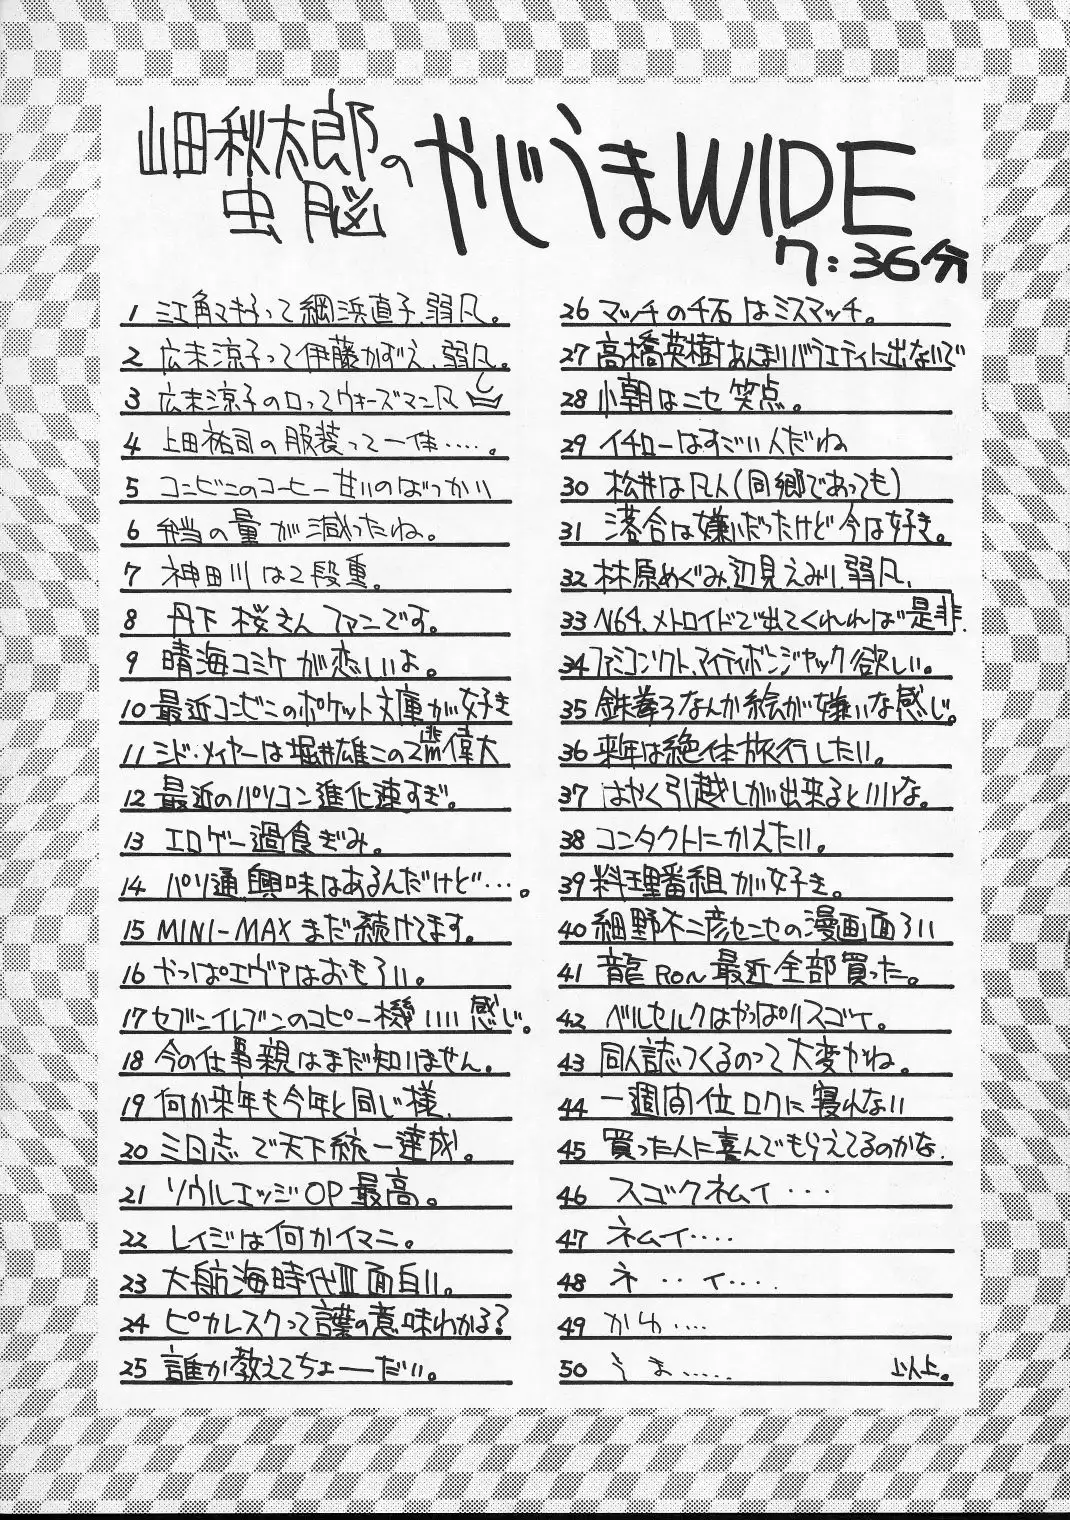 山田秋太郎の
虫脳
やじうまWIDE
7:36分
1 江角マキ子って綱浜直子、弱凡。
2 広末涼子って伊藤かずえ、弱凡。
3 広末涼子の口ってウォーズマン凡
4 上田祐司の服装って一体‥‥。
5 コンビニのコーヒー甘いのばっかい
6 弁当の量が減ったね。
7 神田川は2段重。
8 丹下桜さんファンです。
9 晴海コミケが恋しいよ。
10 最近コンビニのポケット文庫が好き
11 シド・メイヤーは堀井雄二の2歯偉大
12 最近のパソコン進化速すぎ。
13 エロゲー過食ぎみ。
14 パソ通興味はあるんだけど…。
15 MINI-MAXまだ続けてます。
16 やっぱエヴァはおもろい。
17 セブンイレブンのコピー機いい感じ。
18 今の仕事親はまだ知りません。
19 何か来年も今年と同じ様、
20 三日志で天下統一達成。
21 ソウルエッジOP最高。
22 レイジは何かイマニ。
23 大航海時代Ⅲ面白い。
24 ピカレスクって言葉の意味わかる?
25 誰か教えてちょーだい。
26 マッチの千石はミスマッチ。
27 高橋英樹あんまりバラエティに出ないで
28 小朝はニセ笑点。
29 イチローはすごい人だね
30 松井は凡人(同郷であっても)
31 落合は嫌いだったけど今は好き。
32 林原めぐみ、辺見えみり、弱凡、
33 N64、メトロイドで出てくれれば是非.
34 ファミコンソフト、マイティボンジャック欲しい。
35 鉄拳3なんか絵が嫌いな感じ。
36 来年は絶体旅行したい。
37 はやく引越しが出来るといいな。
38 コンタクトにかえたい。
39 料理番組が好き。
40 細野不二彦センセの漫画面ろい
41 龍Ron最近全部買った。
42 ベルセルクはやっぱりスゴイ。
43 同人誌つくるのって大変かね。
44 一週間位ロクに寝れない
45 買った人に喜んでもらえてるのかな.
46 スゴクネムイ…
47 ネムイ‥‥
48 ネ‥イ‥‥
49 かゆ‥‥
50 うま‥‥‥
以上。